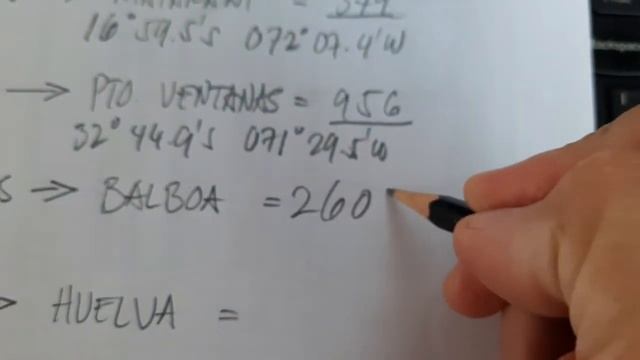 = 344
16°59.5's 072°07.4'W
→ PTO VENTANAS = 956
32°44.9's 071°29.5'W
S → BALBOA = 260
→ HUELVA =